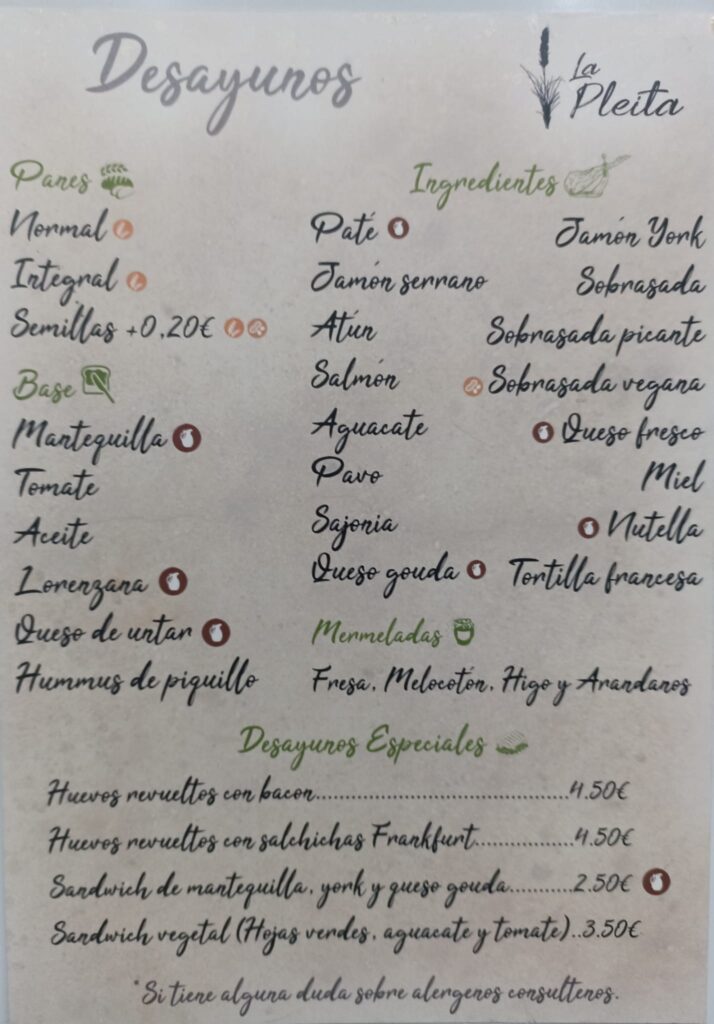 Desayunos
La
Pleita
Panes
Normal
Integral
Semillas +0,20€
Base
Mantequilla
Tomate
Aceite
Lorenzana
Queso de untar
Hummus de piquillo
Ingredientes
Paté
Jamón serrano
Atún
Salmón
Aguacate
Pavo
Sajonia
Queso gouda
Jamón York
Sobrasada
Sobrasada picante
Sobrasada vegana
Queso fresco
Miel
Nutella
Tortilla francesa
Mermeladas
Fresa, Melocotón, Higo y Arandanos
Desayunos Especiales
Huevos revueltos con bacon......................................4.50€
Huevos revueltos con salchichas Frankfurt...............4.50€
Sandwich de mantequilla, york y queso gouda..........2.50€
Sandwich vegetal (Hojas verdes, aguacate y tomate)..3.50€
*Si tiene alguna duda sobre alergenos consultenos.